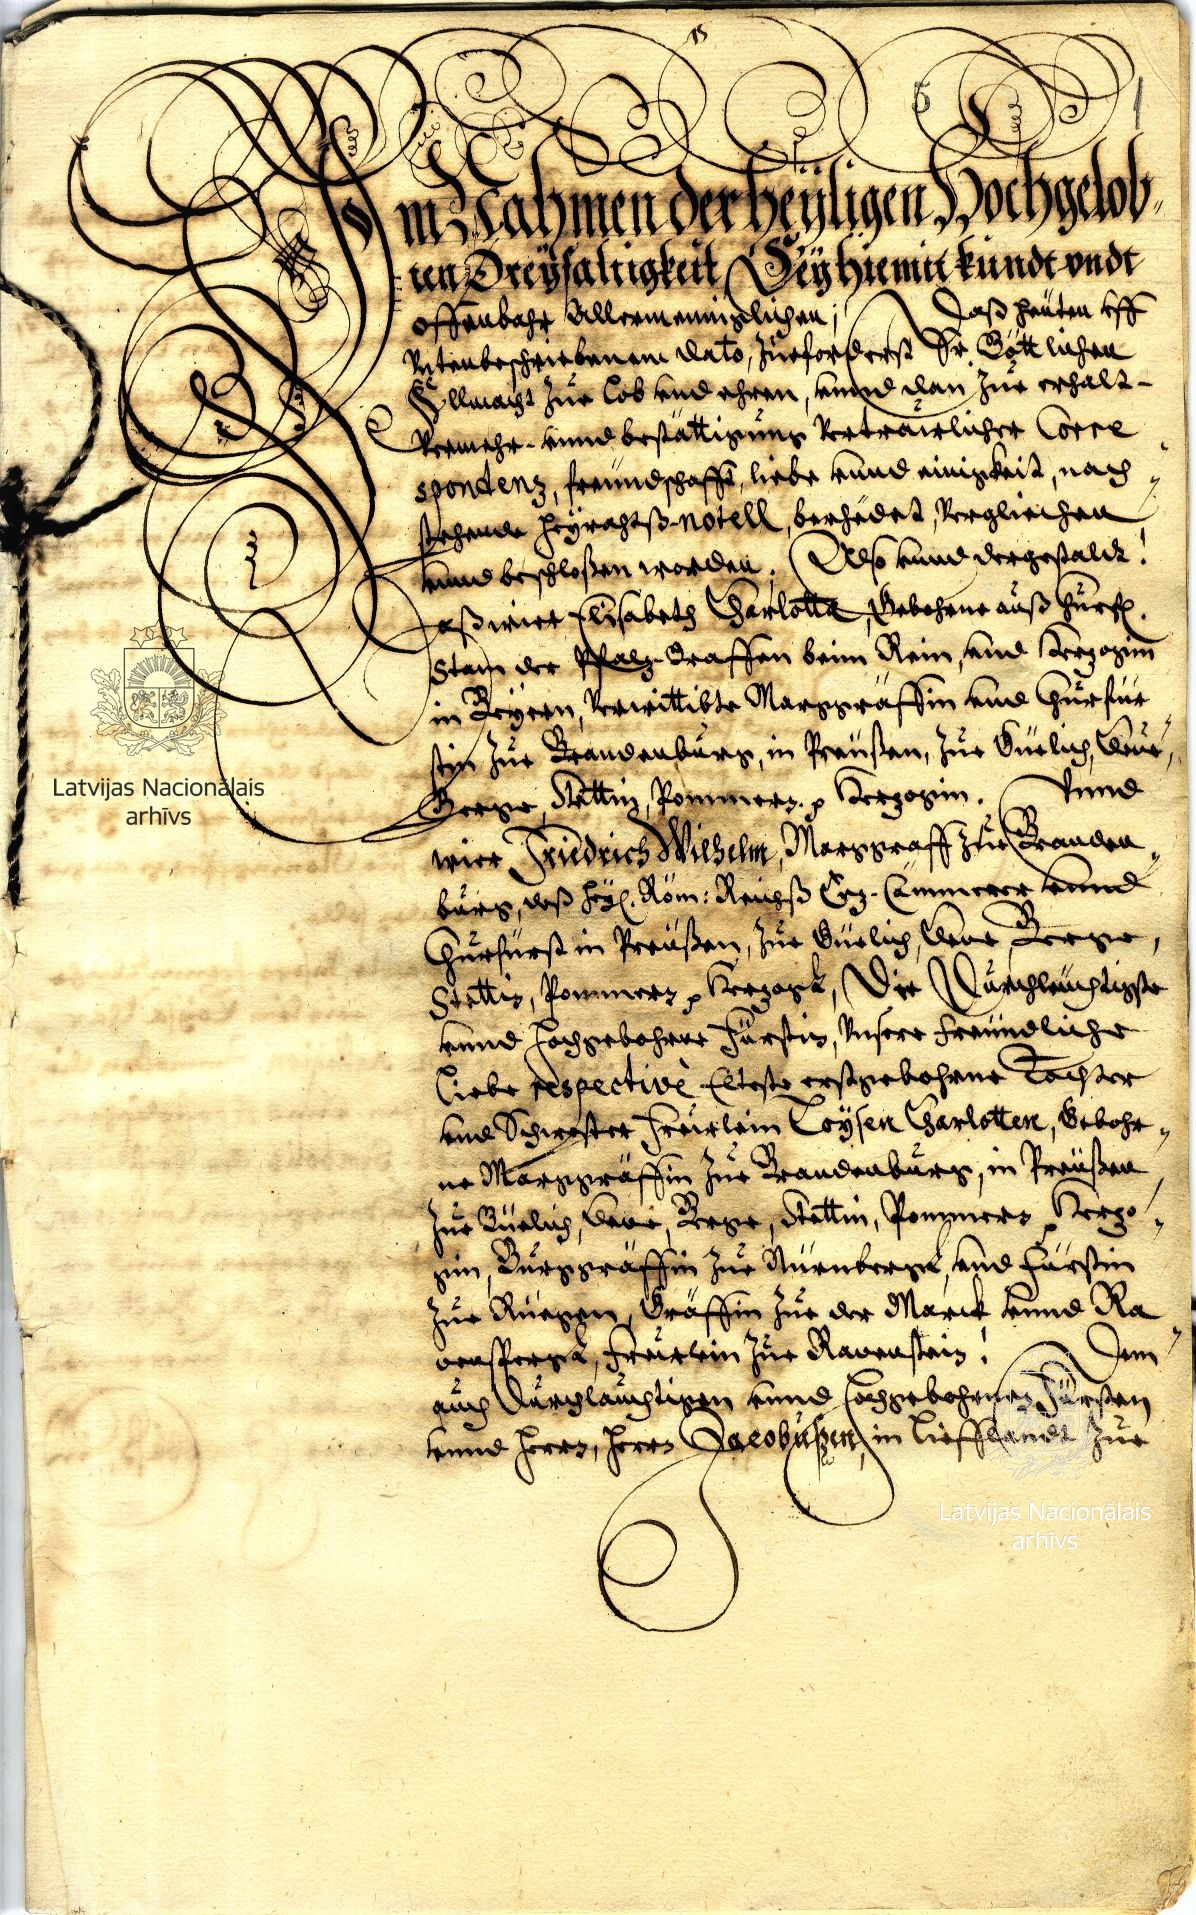 5 1
Im Nahmen der heyligen Hochgelob„
ten Dreyfaltigkeit Sey hiemit kundt vndt
offenbahr Allermenniglichen, Daß heuten vff
Vntenbeschriebenem dato, zueforderst Sr. Göttlichen
Allmacht zue lob vnd ehren, vnnd dan zue erhalt-
Vermehr- vnnd bestättigung Vertrawlicher Corre
spondenz, freundschafft, liebe vnnd einigkeit, nach
stehende Heyrahtß-notell, berehdet, Verglichen
vnnd beschloßen worden. Also vnnd dergestaldt!
aß wier Elisabeth Charlotta, Gebohrne auß Churfl.
Stam der Pfalz-Graffen beim Rein, vnd Herzogin
in Beyern, Verwittibte Marggräffin vnd Churfür
stin zue Brandenburg, in Preußen, zue Guelich, Cleve,
Berge, Stettin, Pommern p Herzogin. Vnnd
wier Friedrich Wilhelm, Marggraff zue Branden„
burg, deß Heyl. Röm: Reichß Erz-Cämmerer vnnd
Churfürst in Preußen, zue Guelich, Cleve, Berge,
Stettin, Pommern p Herzogk, Die Durchleuchtigste
vnnd Hochgebohrne Fürstin, Vnsere freundliche
liebe respectivè Elteste erstgebohrne Tochter
vnd Schwester Freuwlein Loysen Charlotten, Gebohr„
ne Marggräffin zue Brandenburg, in Preußen,
zue Guelich, Cleve, Berge, Stettin, Pommern p Herzo„
gin, Burggräffin zue Nürnbergk, vnd Fürstin
zue Ruegen, Gräffin zue der Marck vnnd Ra„
venspergk, Freuwlein zue Ravenstein! Dem
auch Durchlauchtigen vnnd Hochgebohrnen Fürsten
vnnd Herrn, Herrn Jacobußen, in Liefflandt zue
Latvijas Nacionālais
arhīvs
Latvijas Nacionālais
arhīvs